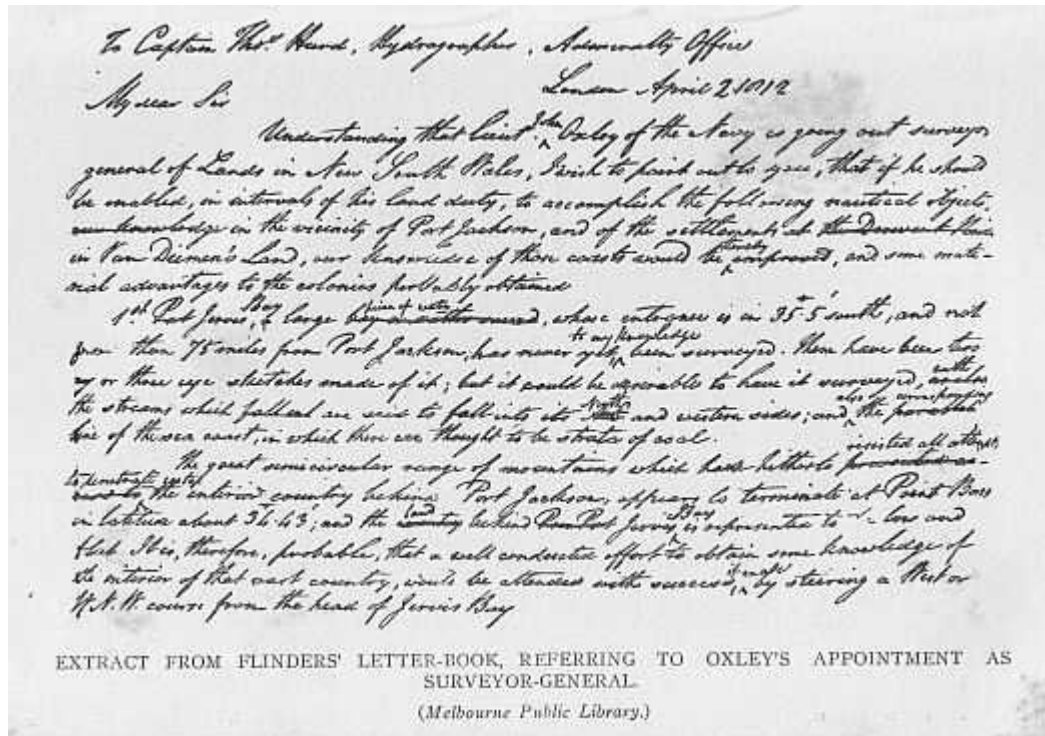 To Captain Thos. Hurd, Hydrographer, Admiralty Office
London April 2 1812
My dear Sir
Understanding that Lieut. John Oxley of the Navy is going out surveyor
general of Lands in New South Wales, I wish to point out to you, that if he should
be enabled, in intervals of his land duty, to accomplish the following nautical objects,
our knowledge in the vicinity of Port Jackson, and of the settlements at the Derwent
in Van Diemen's Land, our knowledge of those coasts would be thereby improved, and some mate-
rial advantages to the colonies probably obtained
1st. Port Jervis Bay, a large piece of water, whose entrance is in 35° 5' south, and not
more than 75 miles from Port Jackson, has never yet to my knowledge been surveyed. There have been two
or three eye sketches made of it; but it would be desirable to have it surveyed, with
the streams which are said to fall into its North and western sides; and also the corresponding
line of the sea coast, in which there are thought to be strata of coal.
The great semicircular range of mountains which has hitherto resisted all attempts
to penetrate into the interior country behind Port Jackson, appears to terminate at Point Bass
in latitude about 34° 43'; and the land behind Port Jervis Bay is represented to low and
flat. It is, therefore, probable, that a well conducted effort to obtain some knowledge of
the interior of that vast country, would be attended with success, if made by steering a West or
W.N.W. course from the head of Jervis Bay
EXTRACT FROM FLINDERS' LETTER-BOOK, REFERRING TO OXLEY'S APPOINTMENT AS
SURVEYOR-GENERAL.
(Melbourne Public Library.)